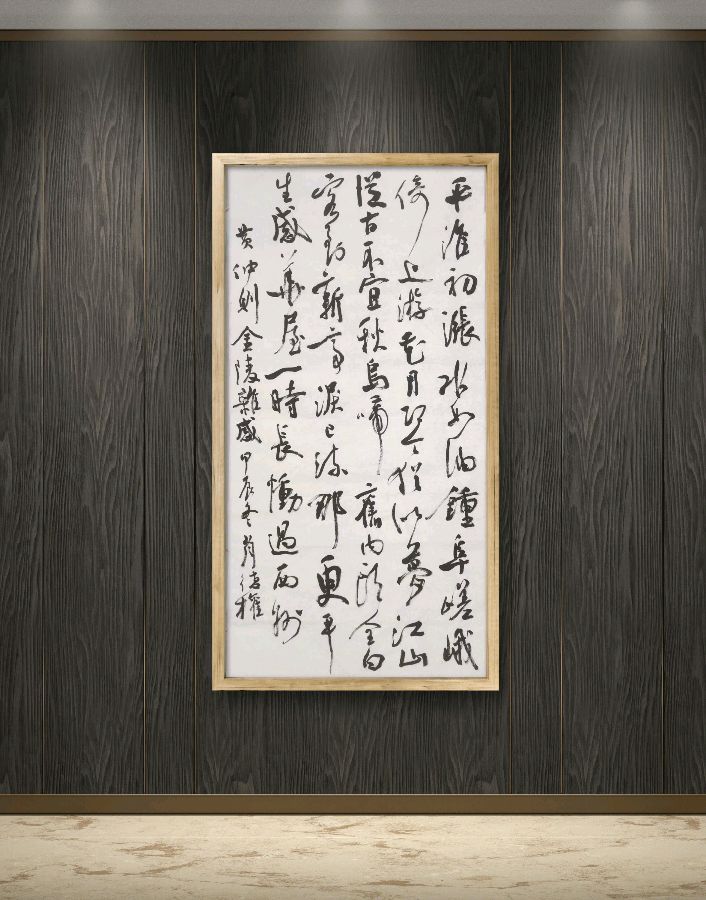 平淮初漲水如油鍾阜嵯峨
倚上游花月即今猶似夢江山
從古不宜秋烏啼舊內頭全白
客到新亭淚已流那更平
生感華屋一時長慟過西州
黃仲則金陵雜感甲辰冬德權